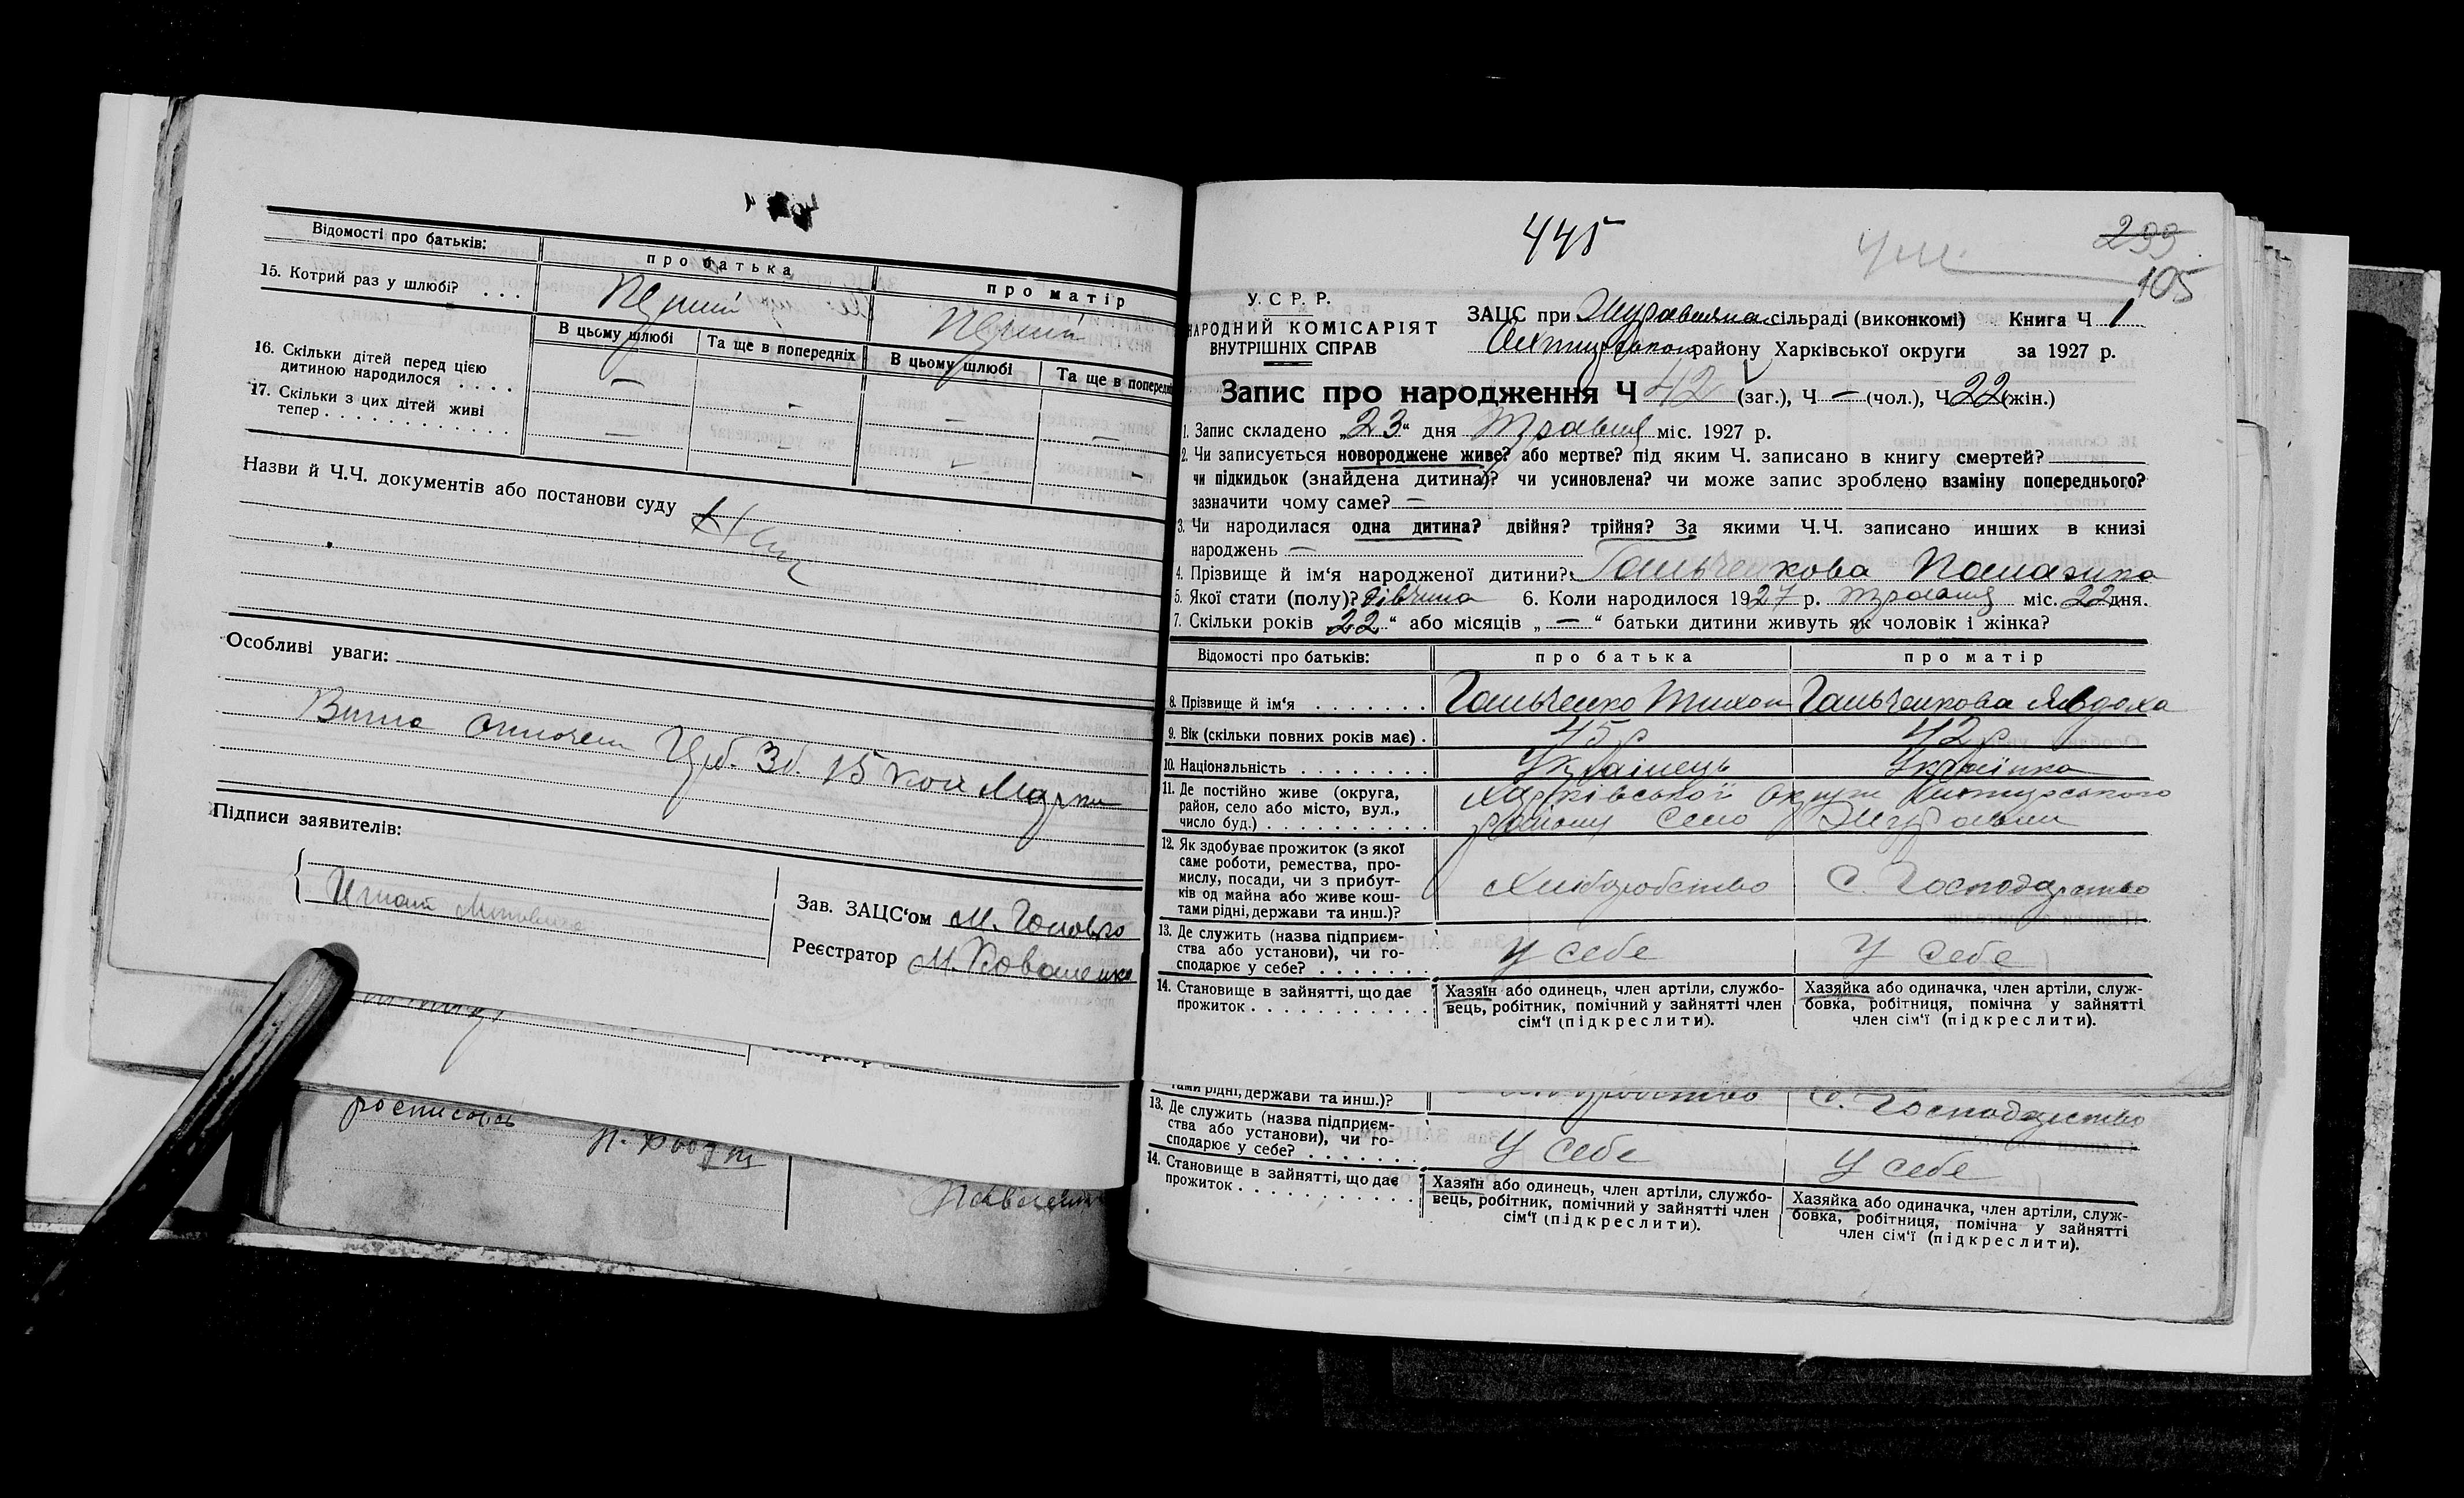 Відомості про батьків:
про батька
про матір
15. Котрий раз у шлюбі? . . .
В цьому шлюбі
Та ще в попередніх
В цьому шлюбі
Та ще в попередн
16. Скільки дітей перед цією
дитиною народилося . . . .
— - — —
17. Скільки з цих дітей живі
тепер . . . . . . . . . . . .
— - - -
Назви й Ч.Ч. документів або постанови суду
Особливі уваги:
15 коп Марки
Підписи заявителів:
Зав. ЗАЦС‘ом М. Головко
Реєстратор М. Коваленко
росписавсь
445
299
105
У. С. Р. Р.
НАРОДНИЙ КОМІСАРІЯТ
ВНУТРІШНІХ СПРАВ
ЗАЦС при сільраді (виконкомі) Книга Ч 1
району Харківської округи за 1927 р.
Запис про народження Ч 42 (заг.), Ч — (чол.), Ч 22 (жін.)
1. Запис складено „23“ дня Травня міс. 1927 р.
2. Чи записується новороджене живе? або мертве? під яким Ч. записано в книгу смертей?
чи підкидьок (знайдена дитина)? чи усиновлена? чи може запис зроблено взаміну попереднього?
зазначити чому саме? —
3. Чи народилася одна дитина? двійня? трійня? За якими Ч.Ч. записано инших в книзі
народжень —
4. Прізвище й ім‘я народженої дитини? Гальченкова
5. Якої стати (полу)? дівчина 6. Коли народилося 1927 р. травня міс. 22 дня.
7. Скільки років „22“ або місяців „—“ батьки дитини живуть як чоловік і жінка?
Відомості про батьків:
про батька
про матір
8. Прізвище й ім‘я . . . . . . . Гальченко Тихон Гальченкова Явдоха
9. Вік (скільки повних років має) . 45 р 42 р
10. Національність . . . . . . . . Українець Українка
11. Де постійно живе (округа,
район, село або місто, вул.,
число буд.) . . . . . . . . . .
Харківської округи
району село
12. Як здобуває прожиток (з якої
саме роботи, ремества, про-
мислу, посади, чи з прибут-
ків од майна або живе кош-
тами рідні, держави та инш.)?
Хліборобство С. Господарство
13. Де служить (назва підприєм-
ства або установи), чи го-
сподарює у себе? . . . . . . .
У себе У себе
14. Становище в зайнятті, що дає
прожиток . . . . . . . . . . .
Хазяїн або одинець, член артіли, службо-
вець, робітник, помічний у зайнятті член
сім‘ї (підкреслити).
Хазяйка або одиначка, член артіли, служ-
бовка, робітниця, помічна у зайнятті
член сім‘ї (підкреслити).
тами рідні, держави та инш.)?
С. Господарство
13. Де служить (назва підприєм-
ства або установи), чи го-
сподарює у себе? . . . . . . .
У себе У себе
14. Становище в зайнятті, що дає
прожиток . . . . . . . . . . .
Хазяїн або одинець, член артіли, службо-
вець, робітник, помічний у зайнятті член
сім‘ї (підкреслити).
Хазяйка або одиначка, член артіли, служ-
бовка, робітниця, помічна у зайнятті
член сім‘ї (підкреслити).